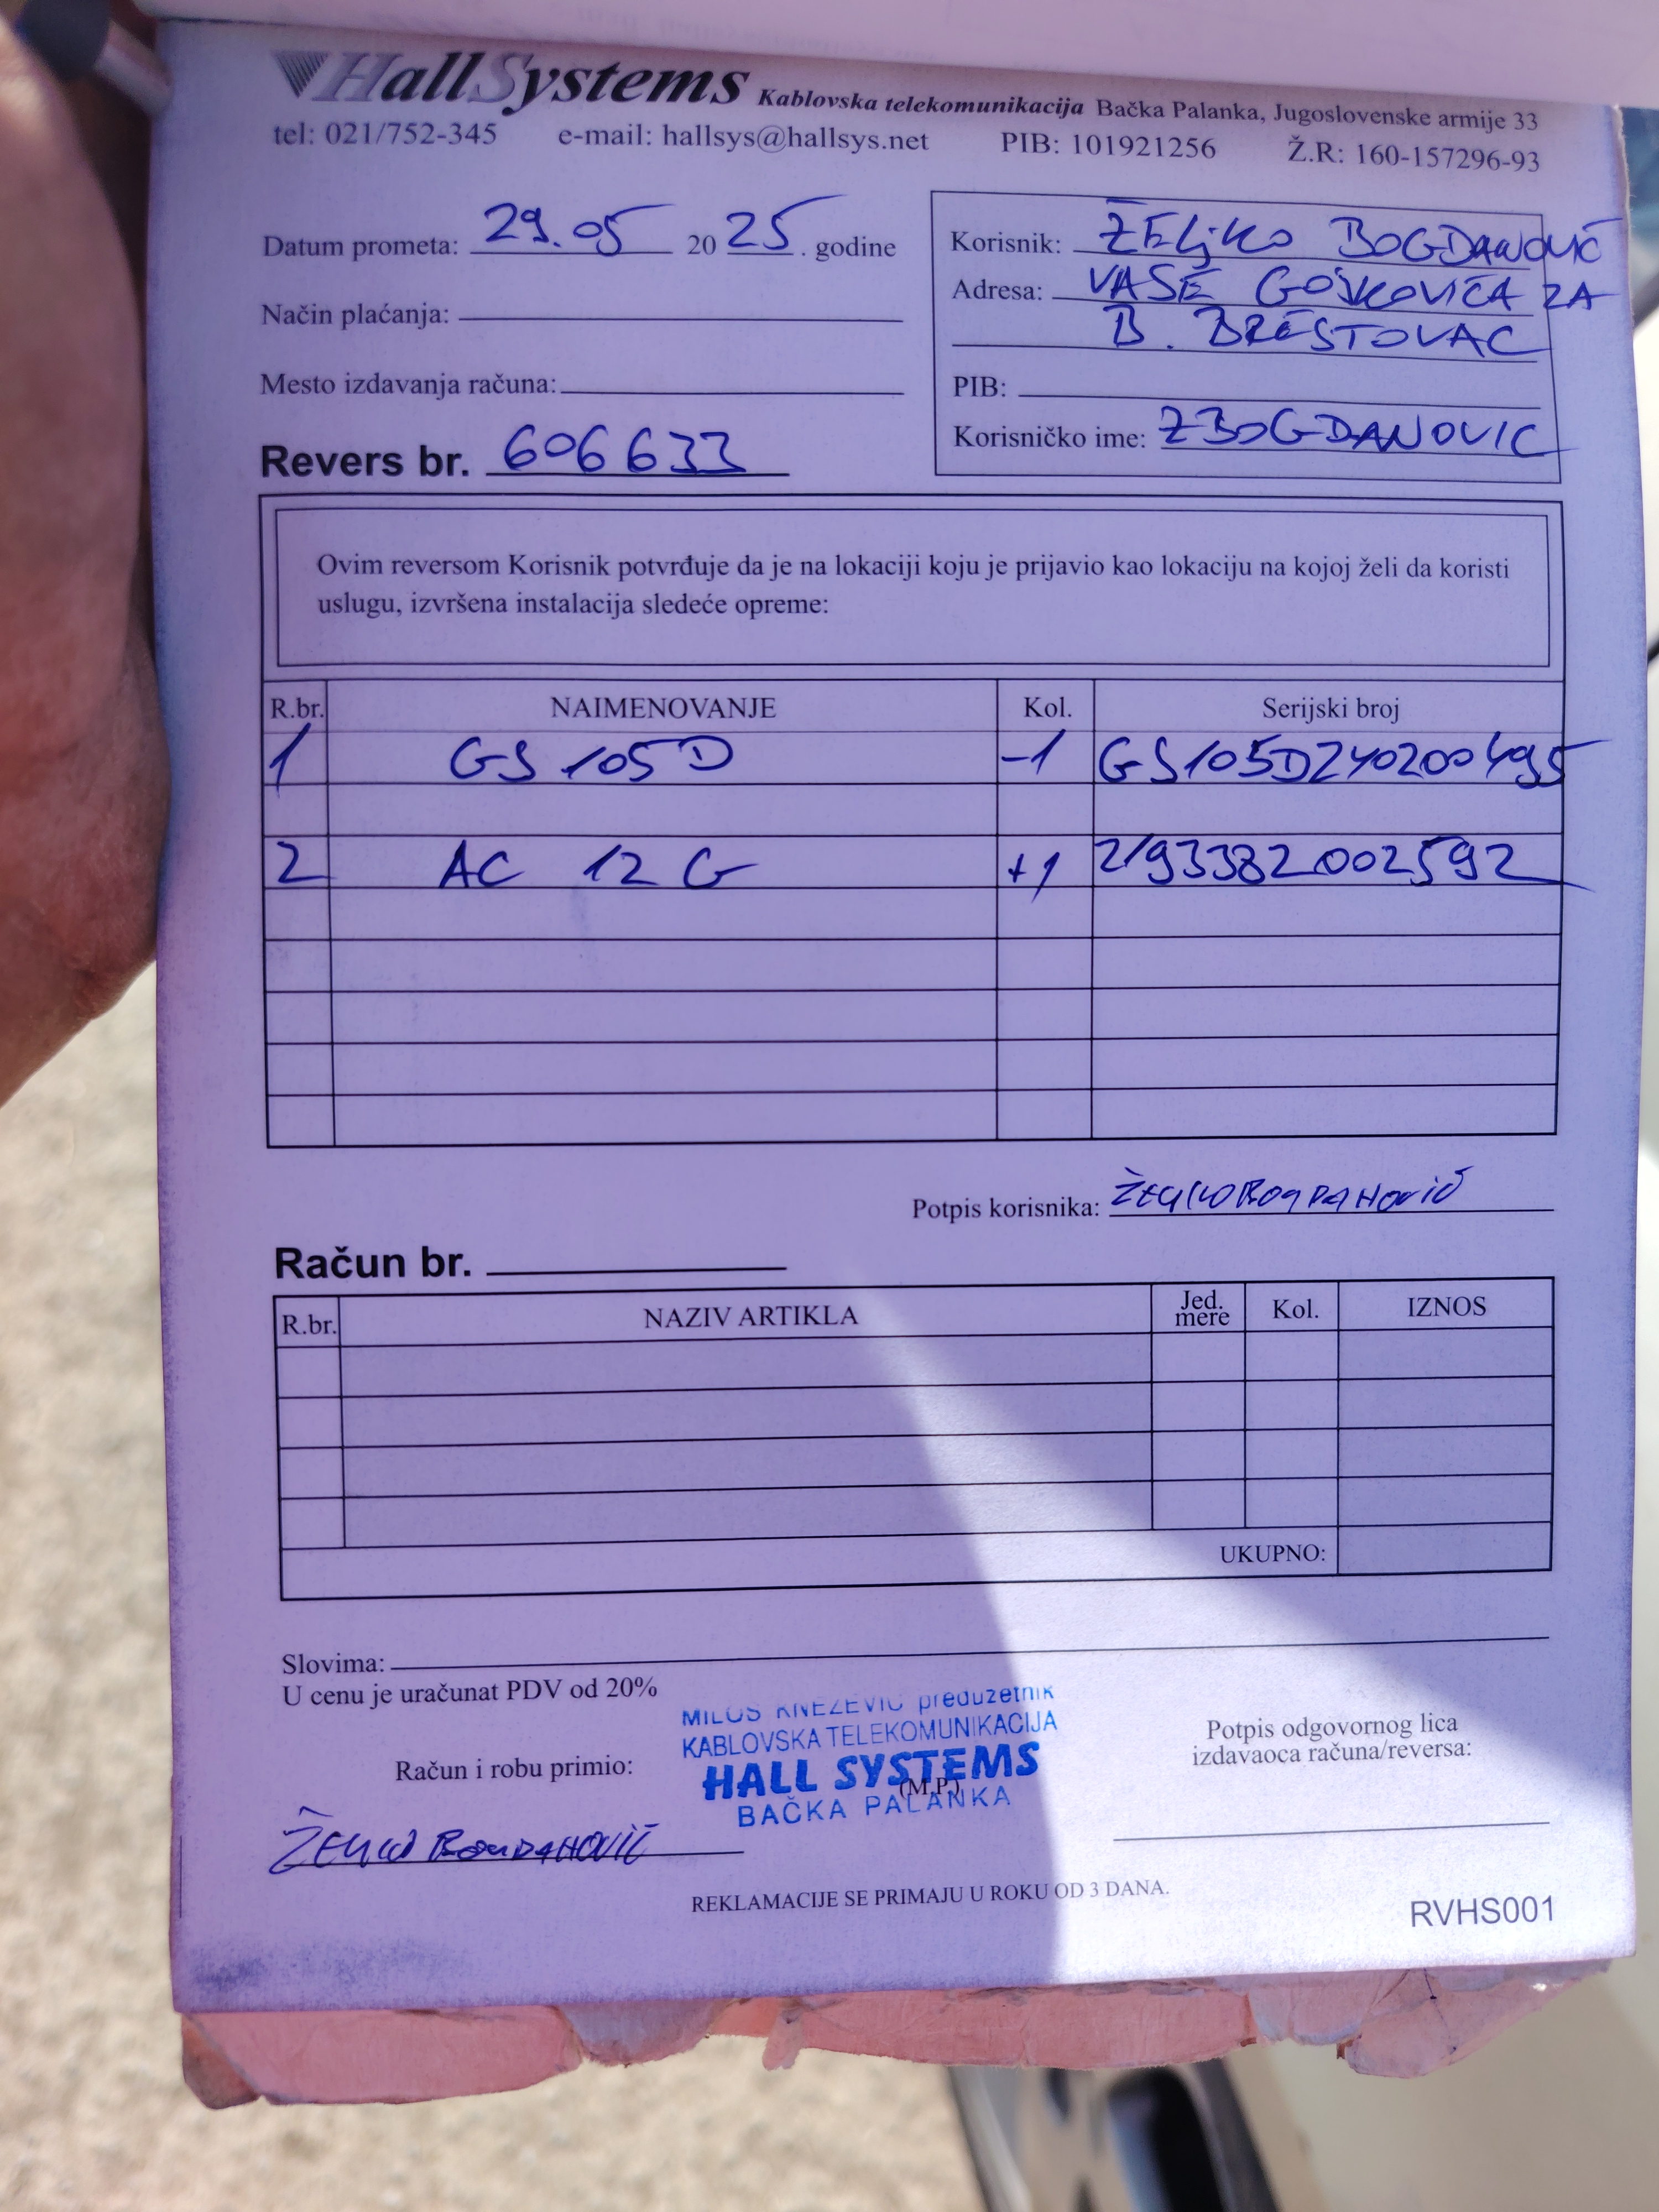 HallSystems Kablovska telekomunikacija Bačka Palanka, Jugoslovenske armije 33
tel: 021/752-345 e-mail: hallsys@hallsys.net PIB: 101921256 Ž.R: 160-157296-93
Datum prometa: 29.05 2025. godine
Način plaćanja:
Mesto izdavanja računa:
Revers br. 606633
Korisnik: ŽELJKO BOGDANOVIĆ
Adresa: VASE GOJKOVIĆA 2A
B. BRESTOVAC
PIB:
Korisničko ime: ZBOGDANOVIC
Ovim reversom Korisnik potvrđuje da je na lokaciji koju je prijavio kao lokaciju na kojoj želi da koristi
uslugu, izvršena instalacija sledeće opreme:
R.br. NAIMENOVANJE Kol. Serijski broj
1 GS 105D -1 GS105D240200495
2 AC 12 G +1 2193382002592
Potpis korisnika: ŽELJKO BOGDANOVIĆ
Račun br.
R.br. NAZIV ARTIKLA Jed. mere Kol. IZNOS
UKUPNO:
Slovima:
U cenu je uračunat PDV od 20%
MILOŠ KNEŽEVIĆ preduzetnik
KABLOVSKA TELEKOMUNIKACIJA
HALL SYSTEMS
BAČKA PALANKA
Račun i robu primio:
(M.P.)
Potpis odgovornog lica
izdavaoca računa/reversa:
ŽELJKO BOGDANOVIĆ
REKLAMACIJE SE PRIMAJU U ROKU OD 3 DANA.
RVHS001